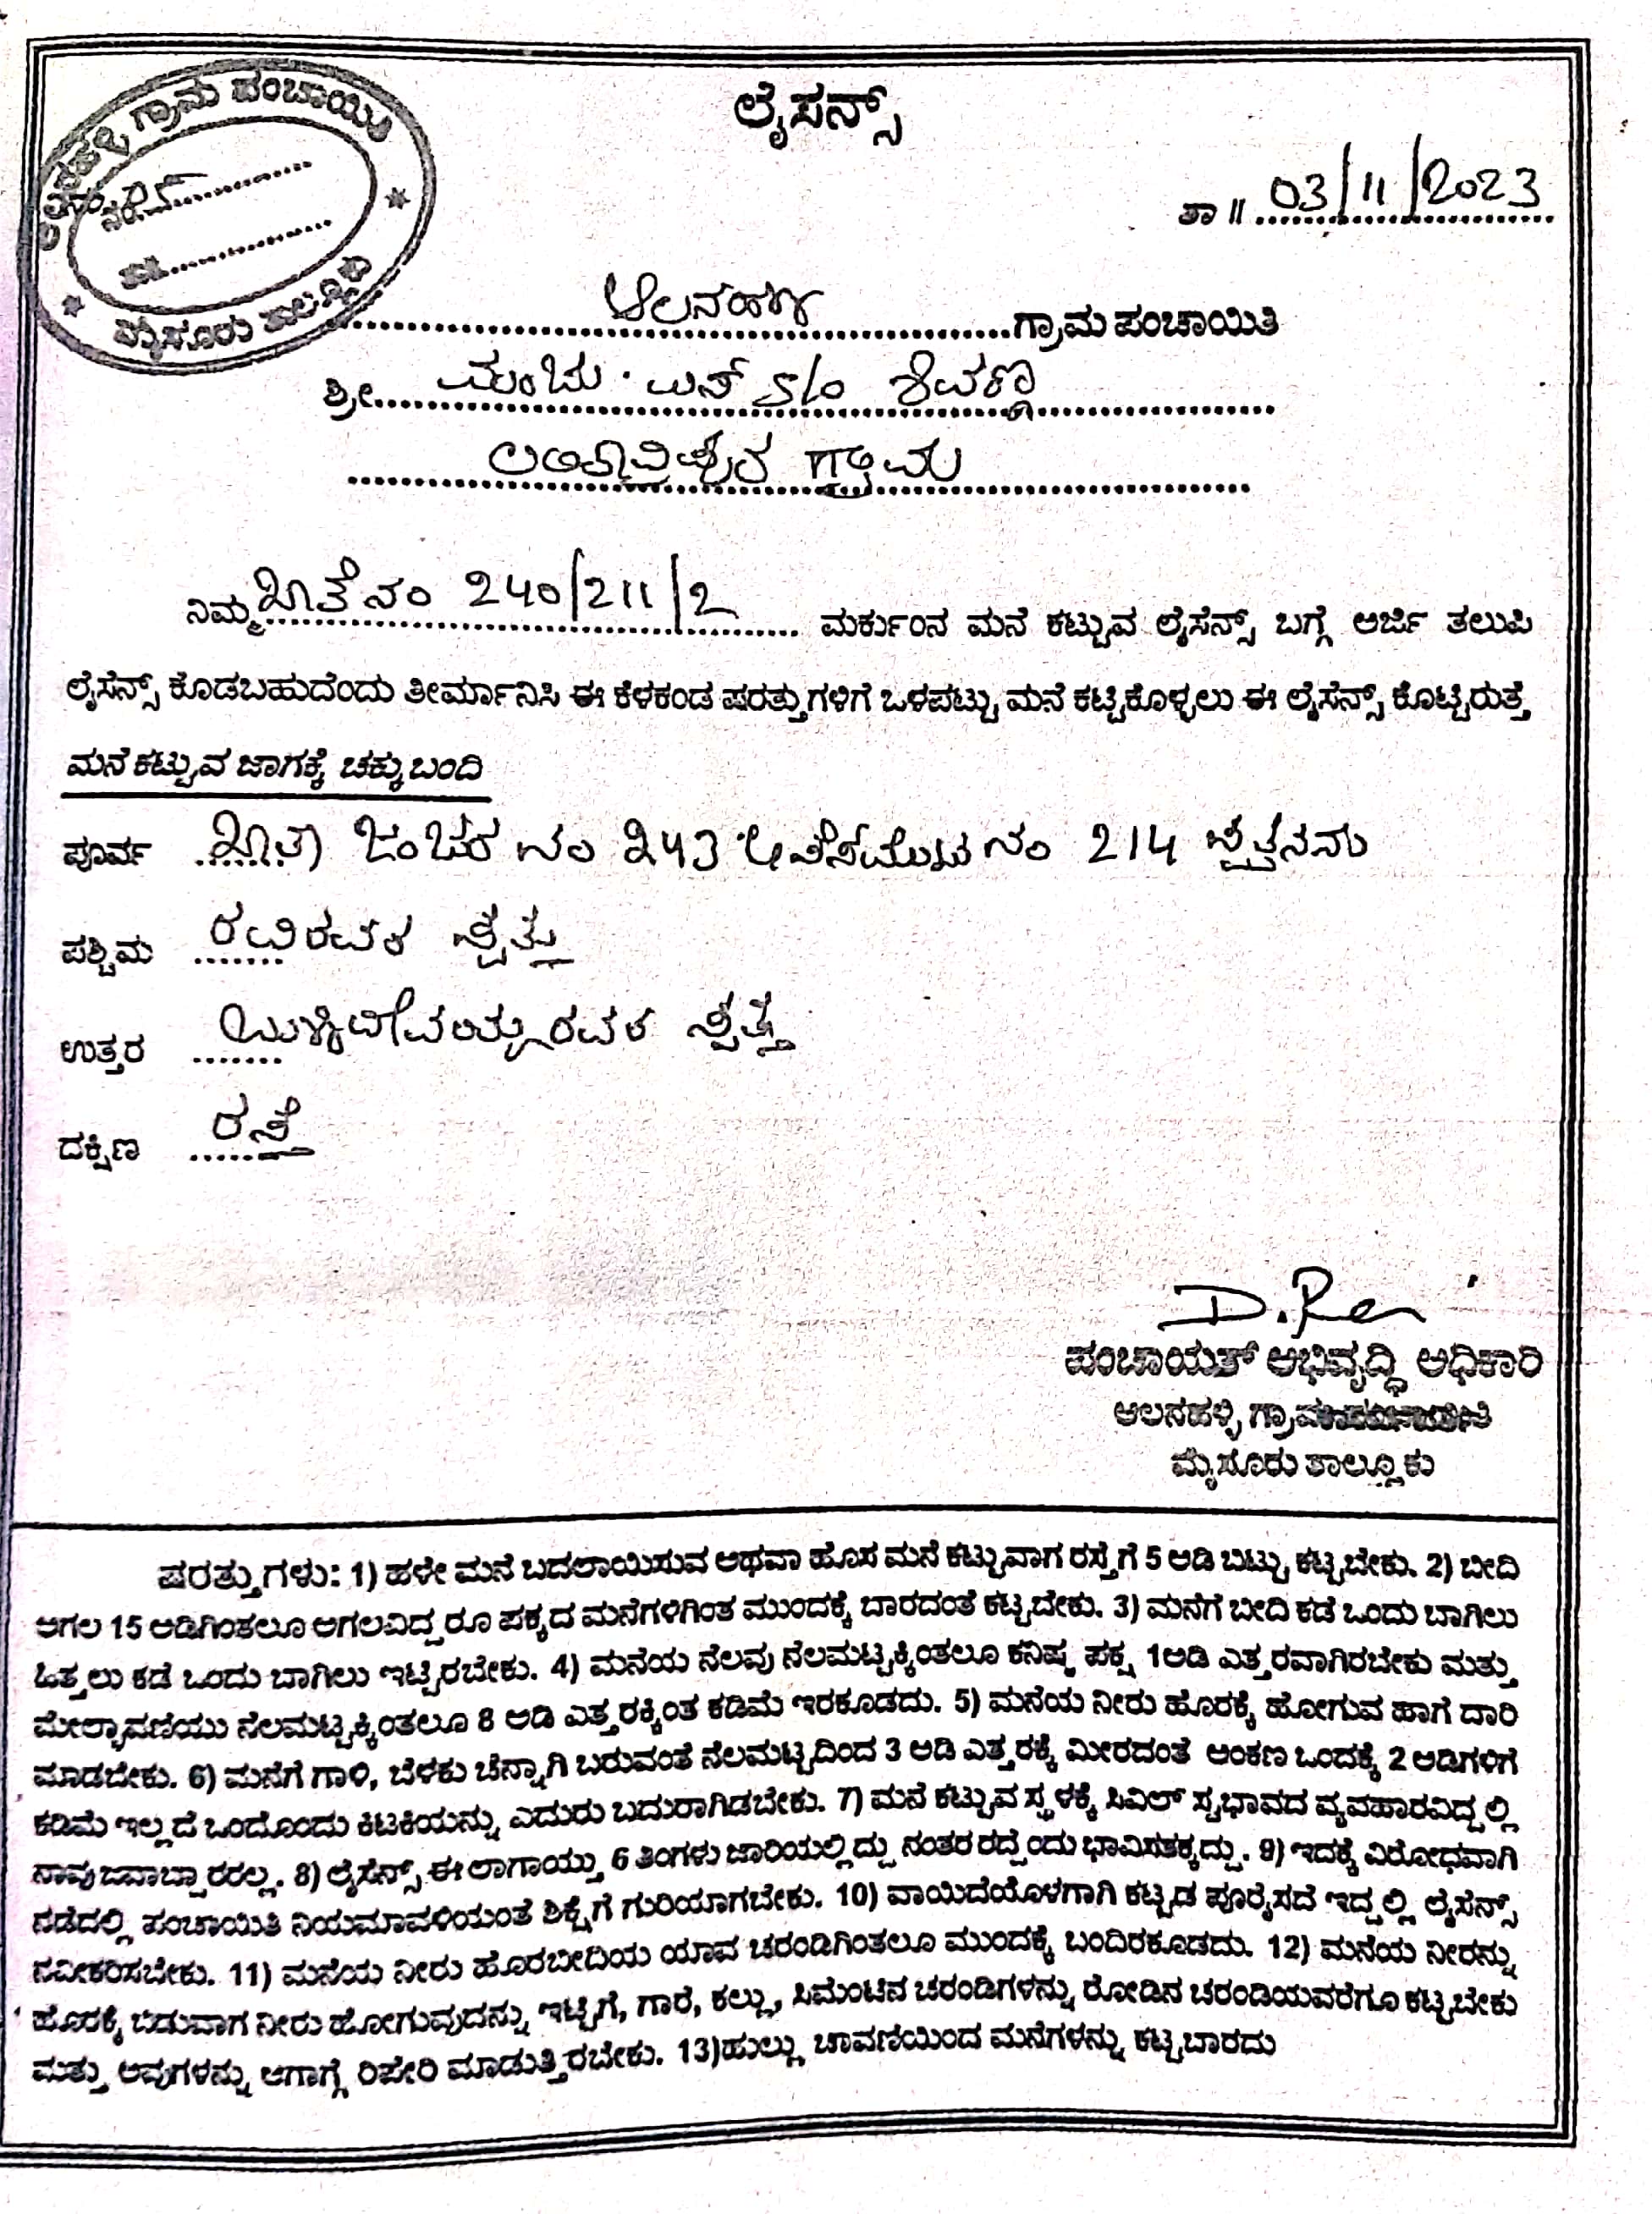 ಗ್ರಾಮ ಪಂಚಾಯಿತಿ
ಮೈಸೂರು ತಾಲ್ಲೂಕು
ಲೈಸನ್ಸ್
ತಾ॥ 03/11/2023
ಆಲನಹಳ್ಳಿ ಗ್ರಾಮ ಪಂಚಾಯಿತಿ
ಶ್ರೀ ಮಂಜು . ಎಸ್ S/o ಶಿವಣ್ಣ
ಗ್ರಾಮ
ನಿಮ್ಮ ಖಾತೆ ನಂ 240/211/2 ಮರ್ಕುಂನ ಮನೆ ಕಟ್ಟುವ ಲೈಸೆನ್ಸ್ ಬಗ್ಗೆ ಅರ್ಜಿ ತಲುಪಿ
ಲೈಸೆನ್ಸ್ ಕೊಡಬಹುದೆಂದು ತೀರ್ಮಾನಿಸಿ ಈ ಕೆಳಕಂಡ ಷರತ್ತುಗಳಿಗೆ ಒಳಪಟ್ಟು ಮನೆ ಕಟ್ಟಿಕೊಳ್ಳಲು ಈ ಲೈಸೆನ್ಸ್ ಕೊಟ್ಟಿರುತ್ತೆ
ಮನೆ ಕಟ್ಟುವ ಜಾಗಕ್ಕೆ ಚಕ್ಕುಬಂದಿ
ಪೂರ್ವ ಖಾತಾ ನಂ 243 ನಂ 214
ಪಶ್ಚಿಮ ರವಿರವರ ಸ್ವತ್ತು
ಉತ್ತರ ಸ್ವತ್ತು
ದಕ್ಷಿಣ ರಸ್ತೆ
ಪಂಚಾಯತ್ ಅಭಿವೃದ್ಧಿ ಅಧಿಕಾರಿ
ಆಲನಹಳ್ಳಿ ಗ್ರಾಮ
ಮೈಸೂರು ತಾಲ್ಲೂಕು
ಷರತ್ತುಗಳು: 1) ಹಳೇ ಮನೆ ಬದಲಾಯಿಸುವ ಅಥವಾ ಹೊಸ ಮನೆ ಕಟ್ಟುವಾಗ ರಸ್ತೆಗೆ 5 ಅಡಿ ಬಿಟ್ಟು ಕಟ್ಟಬೇಕು. 2) ಬೀದಿ
ಅಗಲ 15 ಅಡಿಗಿಂತಲೂ ಅಗಲವಿದ್ದರೂ ಪಕ್ಕದ ಮನೆಗಳಿಗಿಂತ ಮುಂದಕ್ಕೆ ಬಾರದಂತೆ ಕಟ್ಟಬೇಕು. 3) ಮನೆಗೆ ಬೀದಿ ಕಡೆ ಒಂದು ಬಾಗಿಲು
ಹಿತ್ತಲು ಕಡೆ ಒಂದು ಬಾಗಿಲು ಇಟ್ಟಿರಬೇಕು. 4) ಮನೆಯ ನೆಲವು ನೆಲಮಟ್ಟಕ್ಕಿಂತಲೂ ಕನಿಷ್ಠ ಪಕ್ಷ 1ಅಡಿ ಎತ್ತರವಾಗಿರಬೇಕು ಮತ್ತು
ಮೇಲ್ಛಾವಣಿಯು ನೆಲಮಟ್ಟಕ್ಕಿಂತಲೂ 8 ಅಡಿ ಎತ್ತರಕ್ಕಿಂತ ಕಡಿಮೆ ಇರಕೂಡದು. 5) ಮನೆಯ ನೀರು ಹೊರಕ್ಕೆ ಹೋಗುವ ಹಾಗೆ ದಾರಿ
ಮಾಡಬೇಕು. 6) ಮನೆಗೆ ಗಾಳಿ, ಬೆಳಕು ಚೆನ್ನಾಗಿ ಬರುವಂತೆ ನೆಲಮಟ್ಟದಿಂದ 3 ಅಡಿ ಎತ್ತರಕ್ಕೆ ಮೀರದಂತೆ ಅಂಕಣ ಒಂದಕ್ಕೆ 2 ಅಡಿಗಳಿಗೆ
ಕಡಿಮೆ ಇಲ್ಲದೆ ಒಂದೊಂದು ಕಿಟಕಿಯನ್ನು ಎದುರು ಬದುರಾಗಿಡಬೇಕು. 7) ಮನೆ ಕಟ್ಟುವ ಸ್ಥಳಕ್ಕೆ ಸಿವಿಲ್ ಸ್ವಭಾವದ ವ್ಯವಹಾರವಿದ್ದಲ್ಲಿ
ನಾವು ಜವಾಬ್ದಾರರಲ್ಲ. 8) ಲೈಸೆನ್ಸ್ ಈ ಲಾಗಾಯ್ತು 6 ತಿಂಗಳು ಜಾರಿಯಲ್ಲಿದ್ದು ನಂತರ ರದ್ದೆಂದು ಭಾವಿಸತಕ್ಕದ್ದು. 9) ಇದಕ್ಕೆ ವಿರೋಧವಾಗಿ
ನಡೆದಲ್ಲಿ ಪಂಚಾಯಿತಿ ನಿಯಮಾವಳಿಯಂತೆ ಶಿಕ್ಷೆಗೆ ಗುರಿಯಾಗಬೇಕು. 10) ವಾಯಿದೆಯೊಳಗಾಗಿ ಕಟ್ಟಡ ಪೂರೈಸದೆ ಇದ್ದಲ್ಲಿ ಲೈಸೆನ್ಸ್
ನವೀಕರಿಸಬೇಕು. 11) ಮನೆಯ ನೀರು ಹೊರಬೀದಿಯ ಯಾವ ಚರಂಡಿಗಿಂತಲೂ ಮುಂದಕ್ಕೆ ಬಂದಿರಕೂಡದು. 12) ಮನೆಯ ನೀರನ್ನು
ಹೊರಕ್ಕೆ ಬಿಡುವಾಗ ನೀರು ಹೋಗುವುದನ್ನು ಇಟ್ಟಿಗೆ, ಗಾರೆ, ಕಲ್ಲು, ಸಿಮೆಂಟಿನ ಚರಂಡಿಗಳನ್ನು ರೋಡಿನ ಚರಂಡಿಯವರೆಗೂ ಕಟ್ಟಬೇಕು
ಮತ್ತು ಅವುಗಳನ್ನು ಆಗಾಗ್ಗೆ ರಿಪೇರಿ ಮಾಡುತ್ತಿರಬೇಕು. 13)ಹುಲ್ಲು ಚಾವಣಿಯಿಂದ ಮನೆಗಳನ್ನು ಕಟ್ಟಬಾರದು